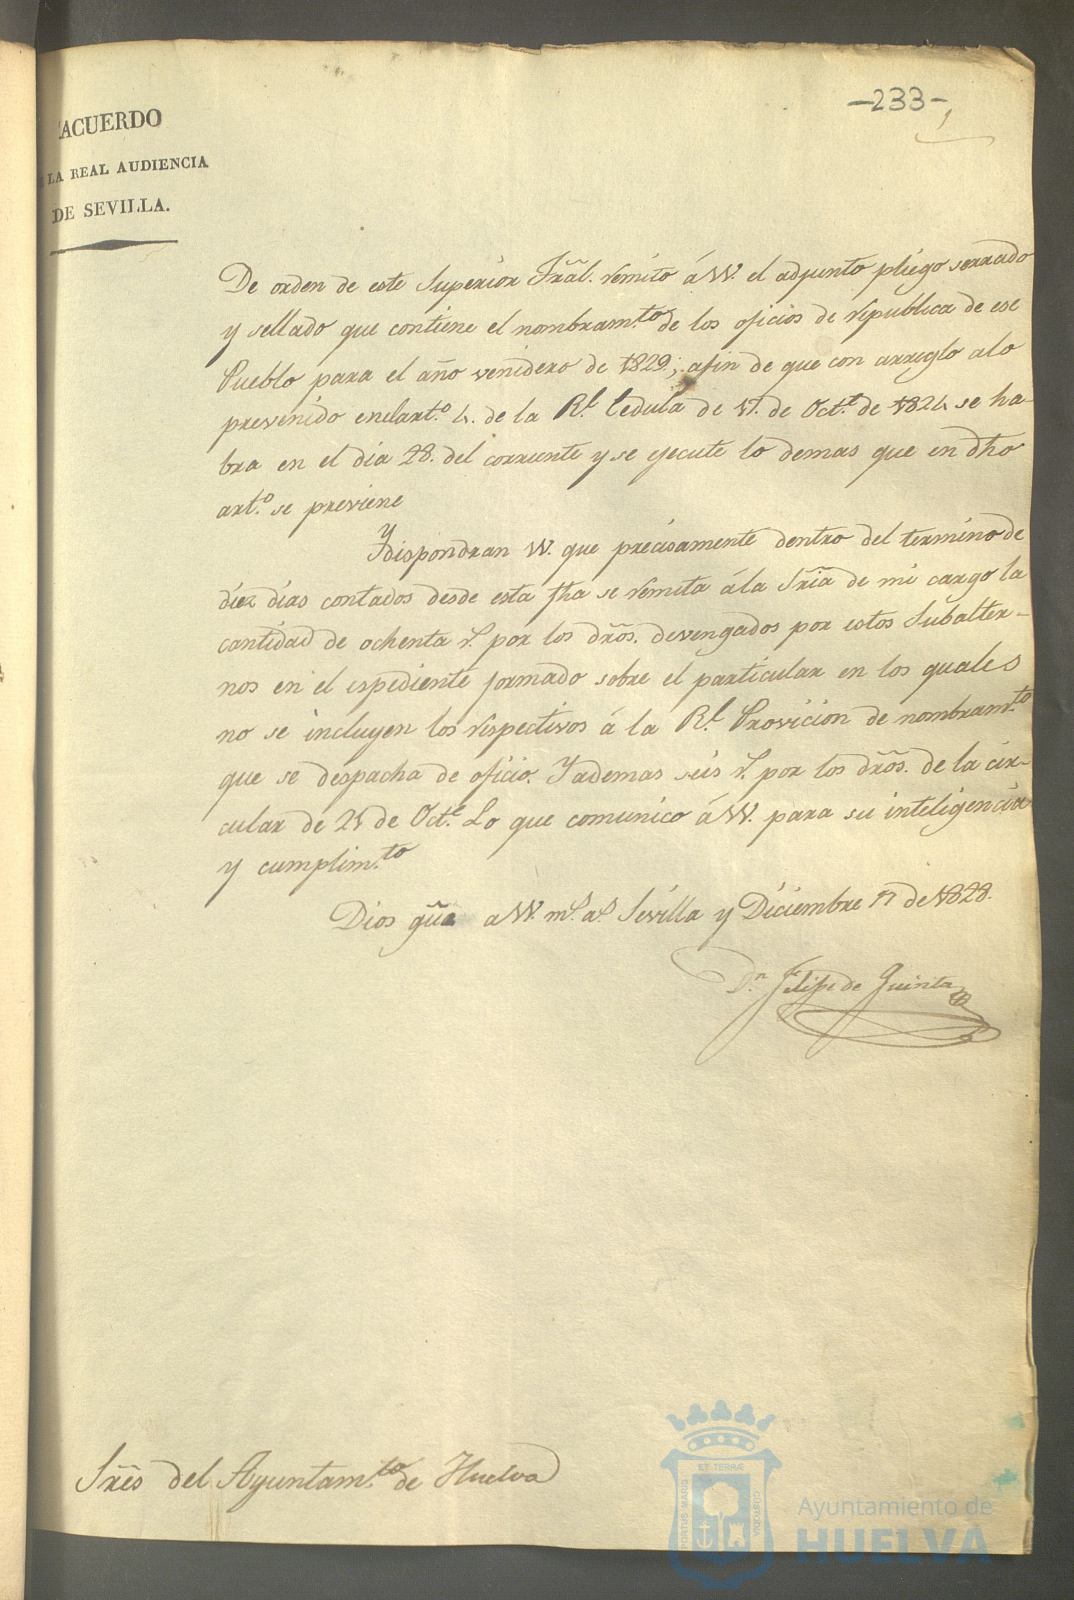 -233-
ACUERDO
LA REAL AUDIENCIA
DE SEVILLA.
De orden de este Superior Trãl. remito á VV. el adjunto pliego serrado
y sellado que contiene el nombram.to de los oficios de republica de ese
Pueblo para el año venidero de 1829; afin de que con arreglo alo
prevenido enelart.o 4. de la R.l Cedula de 17. de Oct.e de 1824 se ha-
bra en el dia 28. del corriente y se ejecute lo demas que en dho
art.o se previene
Y dispondran VV. que precisamente dentro del termino de
diez dias contados desde esta fha se remita ála Sr̃ia de mi cargo la
cantidad de ochenta r.s por los dr̃os. devengados por estos Subalter-
nos en el espediente formado sobre el particular en los quales
no se incluyen los respectivos á la R.l Provicion de nombram.to
que se despacha de oficio. Y ademas seis r.s por los dr̃os. de la cir-
cular de 21 de Oct.e Lo que comunico á VV. para su inteligencia
y cumplim.to
Dios gũe a VV. m.s a.s Sevilla y Diciembre 17 de 1828.
D.n Felipe de Quinta
Sr̃es del Ayuntam.to de Huelva
PORTUS MARIS
ET TERRÆ
CUSTODIA
Ayuntamiento de
HUELVA